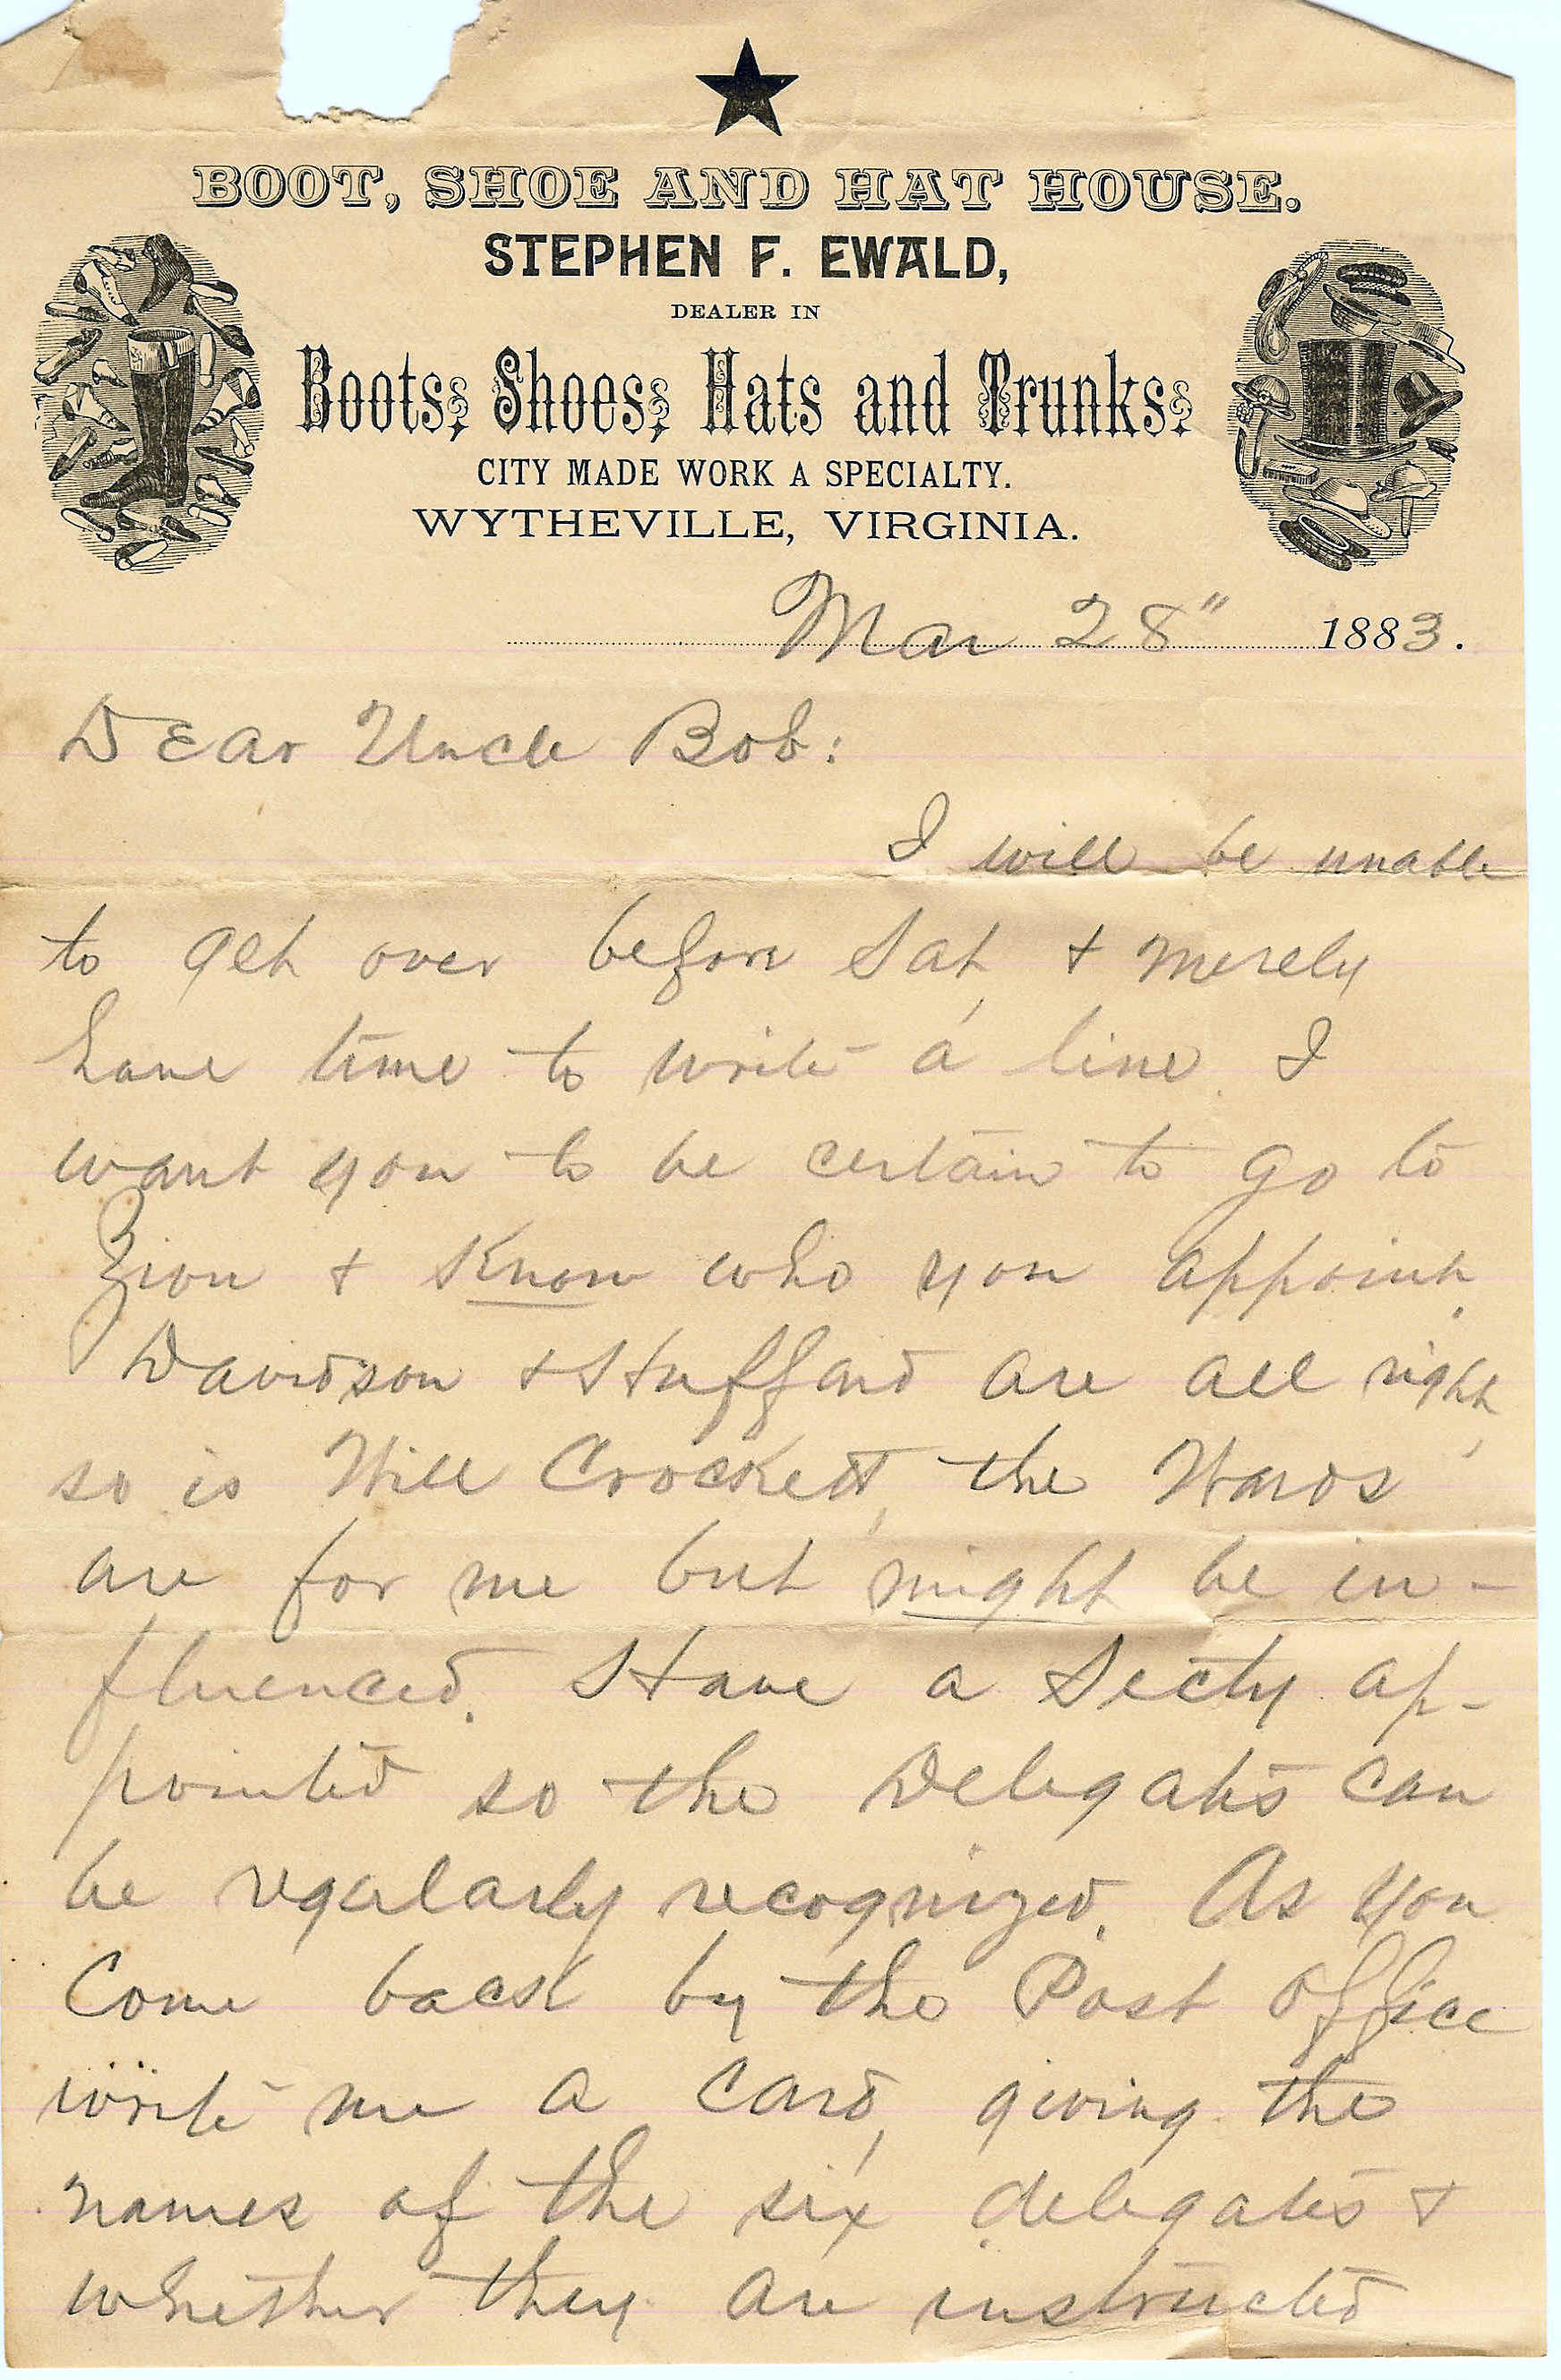 BOOT, SHOE AND HAT HOUSE.
STEPHEN F. EWALD,
DEALER IN
Boots, Shoes, Hats and Trunks.
CITY MADE WORK A SPECIALTY.
WYTHEVILLE, VIRGINIA.
Mar 28" 1883.
Dear Uncle Bob:
I will be unable
to get over before Sat, & merely
have time to write a line. I
want you to be certain to go to
Zion & Know who you appoint.
Davidson & Huffard are all right,
so is Will Crockett, the Wards
are for me but might be in-
fluenced. Have a Secty ap-
pointed so the Delegates can
be regularly recognized. As you
Come back by the Post office
write me a card, giving the
names of the six delegates &
whether they are instructed